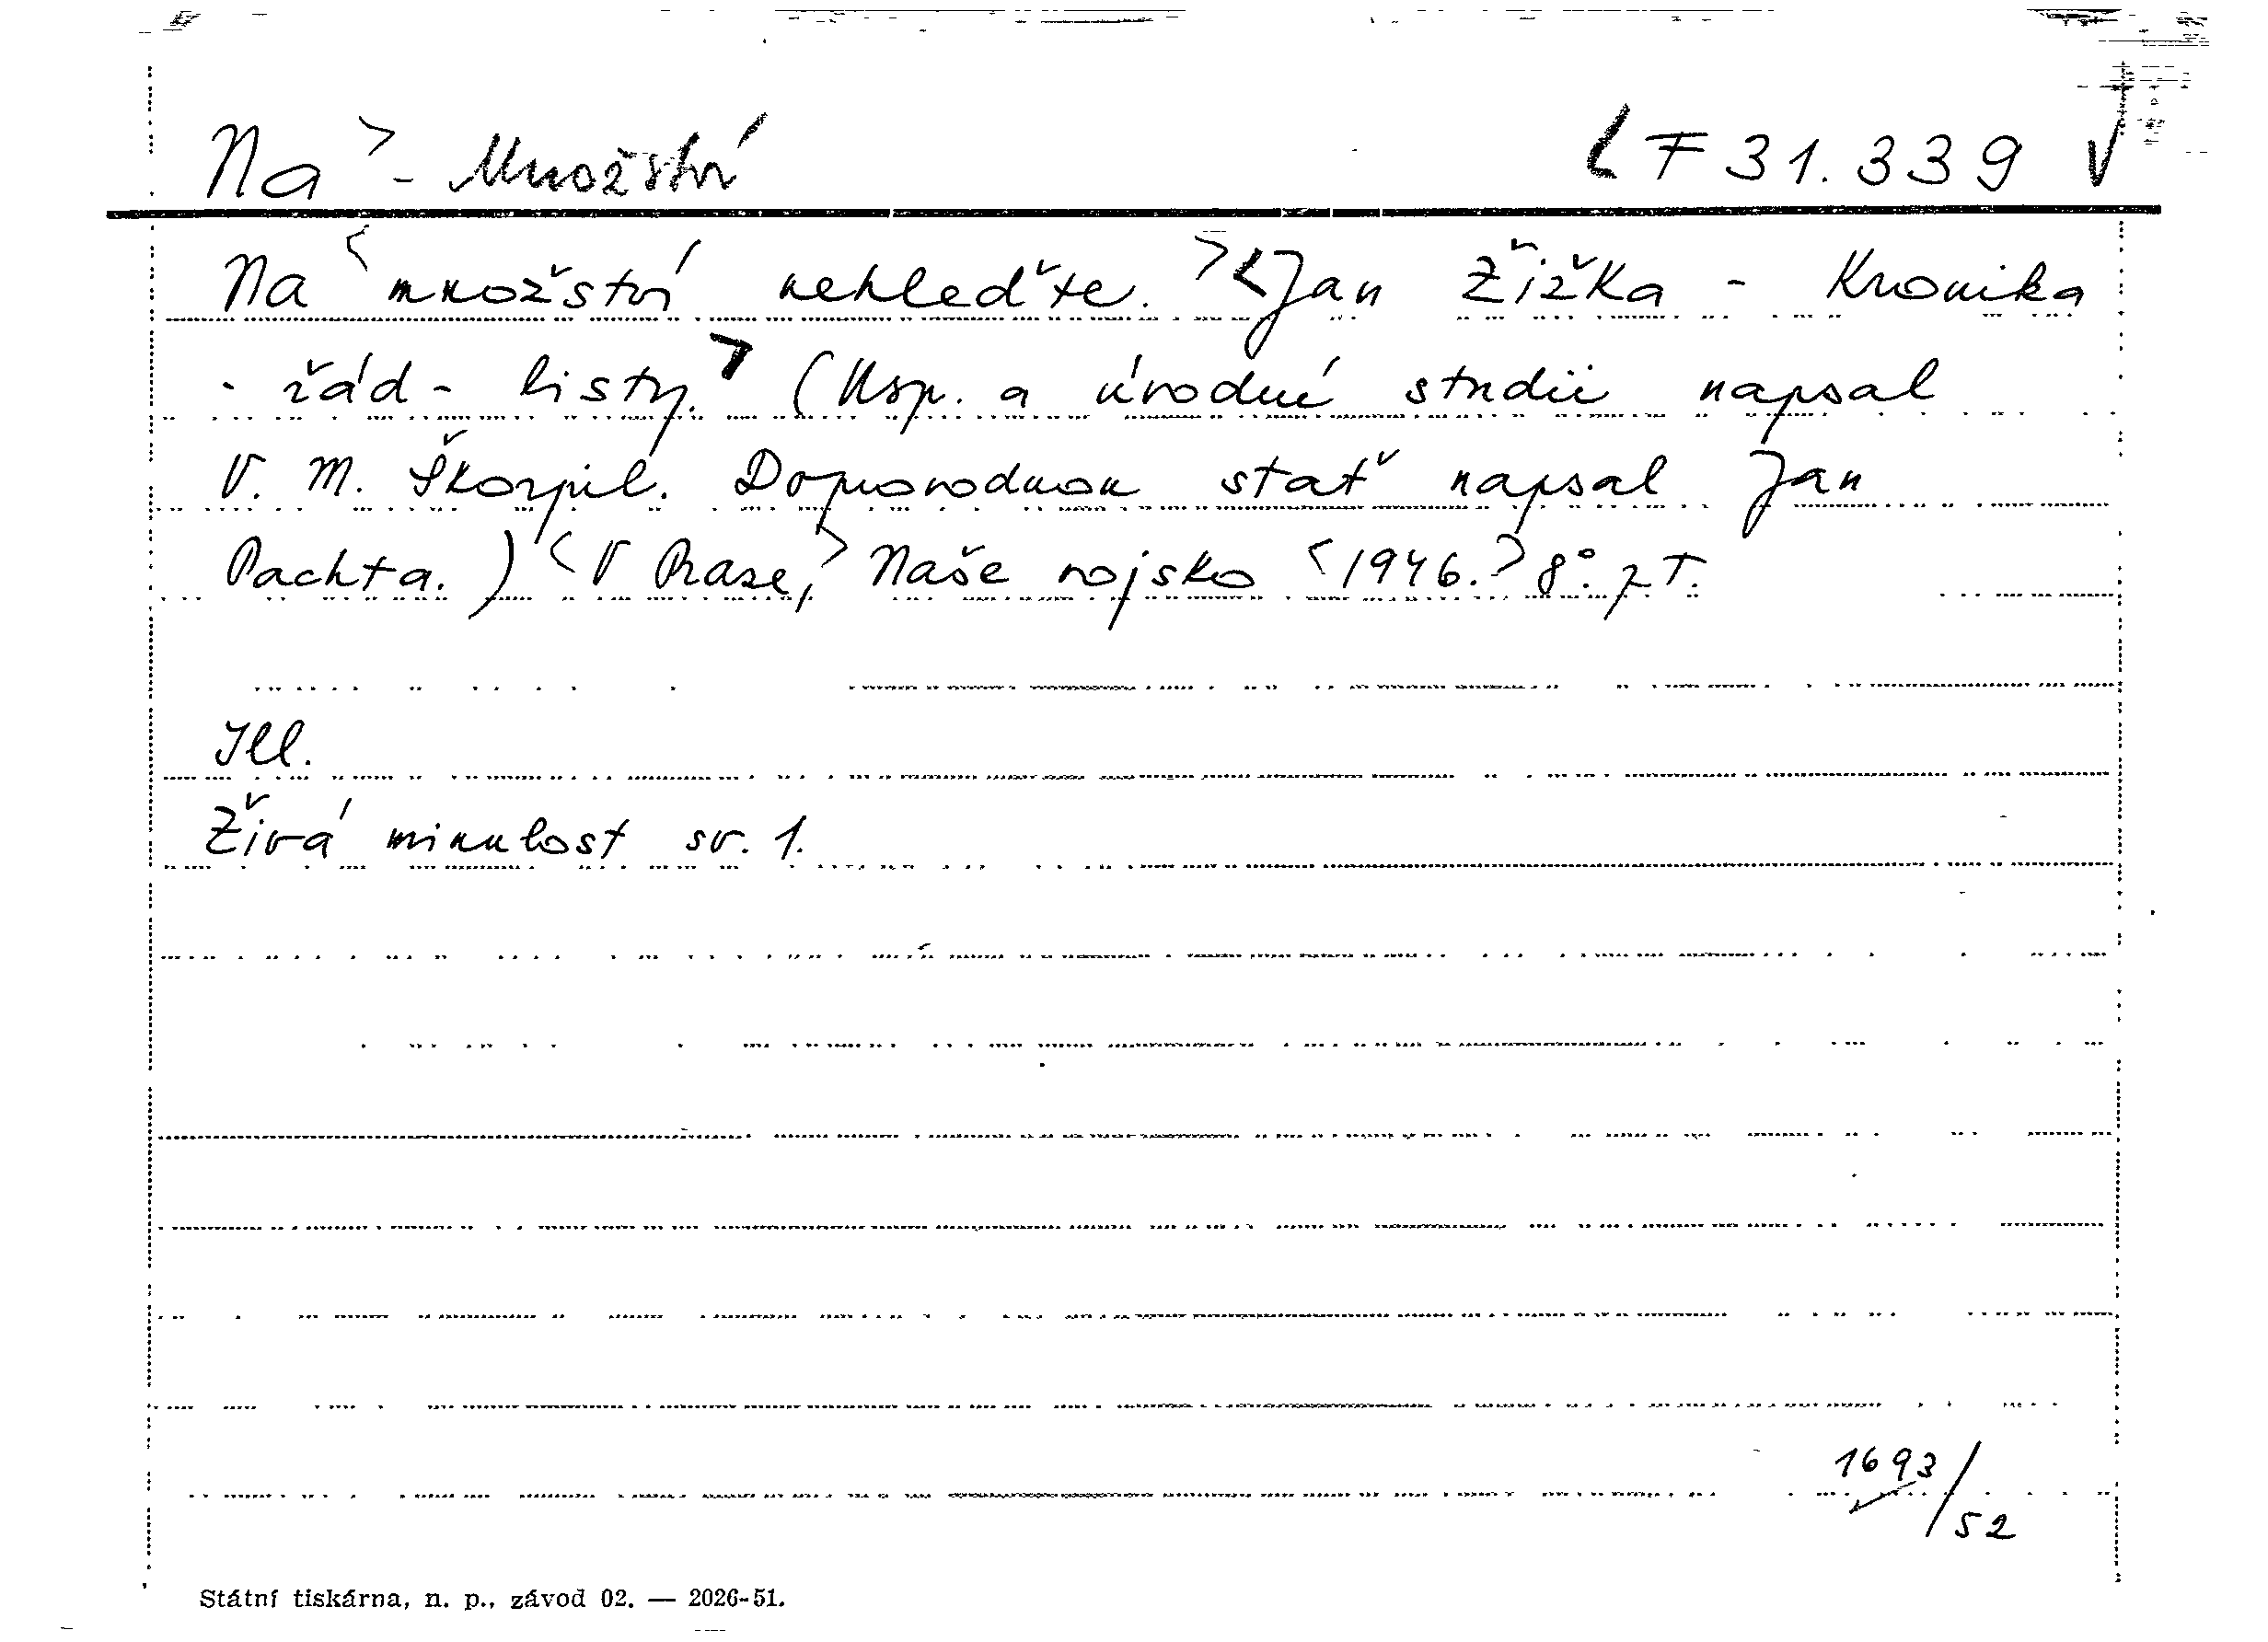 Na > - Množství < F 31.339 V
Na < množství nehleďte. > < Jan Žižka - Kronika
- řád - listy. > (Usp. a úvodní studii napsal
V. M. Škorpil. Doprovodnou stať napsal Jan
Pachta.) < V Praze, > Naše vojsko < 1946. > 8°. pT.
Ill.
Živá minulost sv. 1.
1693/52
Státní tiskárna, n. p., závod 02. — 2026-51.